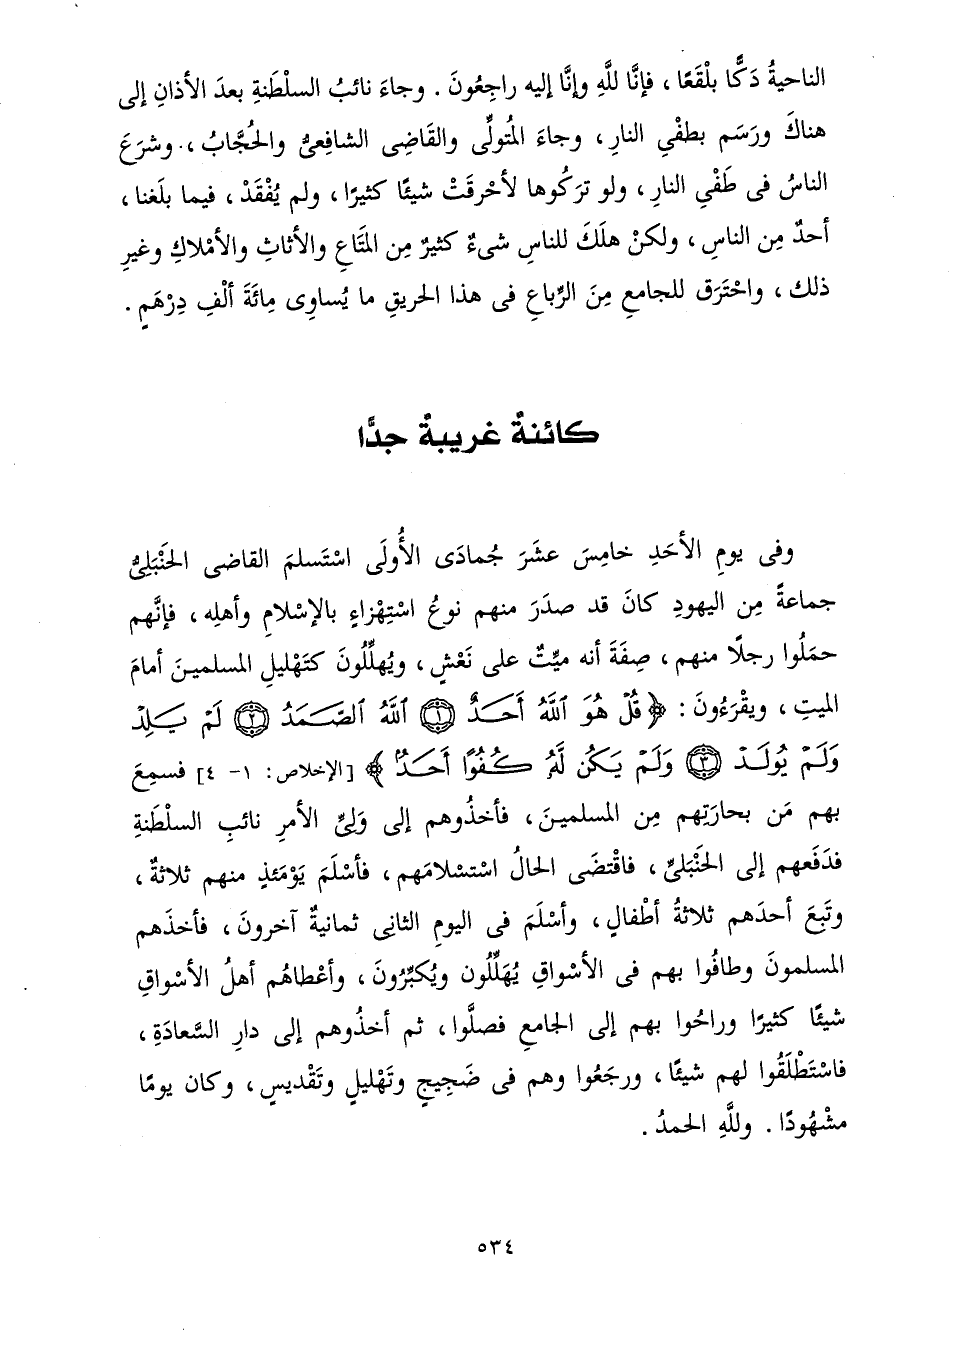 الناحيةُ دَكًّا بلْقَعًا ، فإنَّا للَّهِ وإنَّا إليه راجِعُونَ . وجاءَ نائبُ السلْطَنةِ بعدَ الأذانِ إلى
هناكَ ورَسَم بطفْيِ النارِ ، وجاءَ المُتولِّى والقَاضِى الشافِعىُّ والحُجَّابُ ، وشرَعَ
الناسُ فى طَفْيِ النارِ ، ولو ترَكُوها لأحْرقَتْ شيئًا كثيرًا ، ولم يُفْقَدْ ، فيما بلَغنا ،
أحدٌ مِن الناسِ ، ولكنْ هلَكَ للناسِ شىءٌ كثيرٌ مِن المتَاعِ والأثاثِ والأمْلاكِ وغيرِ
ذلك ، واحْتَرَق للجامعِ مِنَ الرِّباعِ فى هذا الحريقِ ما يُساوِى مِائَةَ ألْفِ دِرْهَمٍ .
كائنةٌ غريبةٌ جدًّا
وفى يومِ الأحَدِ خامِسَ عشَرَ جُمادَى الأُولَى اسْتَسلمَ القاضى الحَنْبَلِىُّ
جماعةً مِن اليهودِ كانَ قد صدَرَ منهم نوعُ اسْتِهْزاءٍ بالإسْلامِ وأهلِه ، فإنَّهم
حمَلُوا رجلًا منهم ، صِفَةَ أنه ميِّتٌ على نَعْشٍ ، ويُهلِّلُونَ كتَهْليلِ المسلمينَ أمامَ
الميتِ ، ويقْرَءُونَ : ﴿ قُلْ هُوَ ٱللَّهُ أَحَدٌ ۝١ ٱللَّهُ ٱلصَّمَدُ ۝٢ لَمْ يَلِدْ
وَلَمْ يُولَدْ ۝٣ وَلَمْ يَكُن لَّهُۥ كُفُوًا أَحَدٌۢ ﴾ [الإخلاص: ١- ٤] فسمِعَ
بهم مَن بحارَتِهم مِن المسلمينَ ، فأخذُوهم إلى وَلِىِّ الأمرِ نائبِ السلْطَنةِ
فدَفَعهم إلى الحَنْبَلىِّ ، فاقْتضَى الحالُ اسْتسْلامَهم ، فأسْلَمَ يَوْمَئذٍ منهم ثلاثةٌ ،
وتَبِعَ أحدَهم ثلاثةُ أطْفالٍ ، وأسْلَمَ فى اليومِ الثانى ثمانيةٌ آخرونَ ، فأخذَهم
المسلمونَ وطافُوا بهم فى الأسْواقِ يُهَلِّلُون ويُكبِّرُونَ ، وأعْطاهُم أهلُ الأسْواقِ
شيئًا كثيرًا وراحُوا بهم إلى الجامعِ فصلَّوا ، ثم أخذُوهم إلى دارِ السَّعادَةِ ،
فاسْتَطْلَقُوا لهم شيئًا ، ورجَعُوا وهم فى ضَجِيجٍ وتَهْليلٍ وتَقْديسٍ ، وكان يومًا
مشْهُودًا . وللَّهِ الحمدُ .
٥٣٤